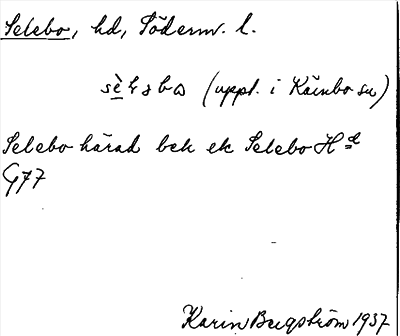 Selebo, hd, Söderm. l.
(uppt. i Kärnbo sn)
Selebo härad bek ek Selebo Hd
G77
Karin Bergström 1937